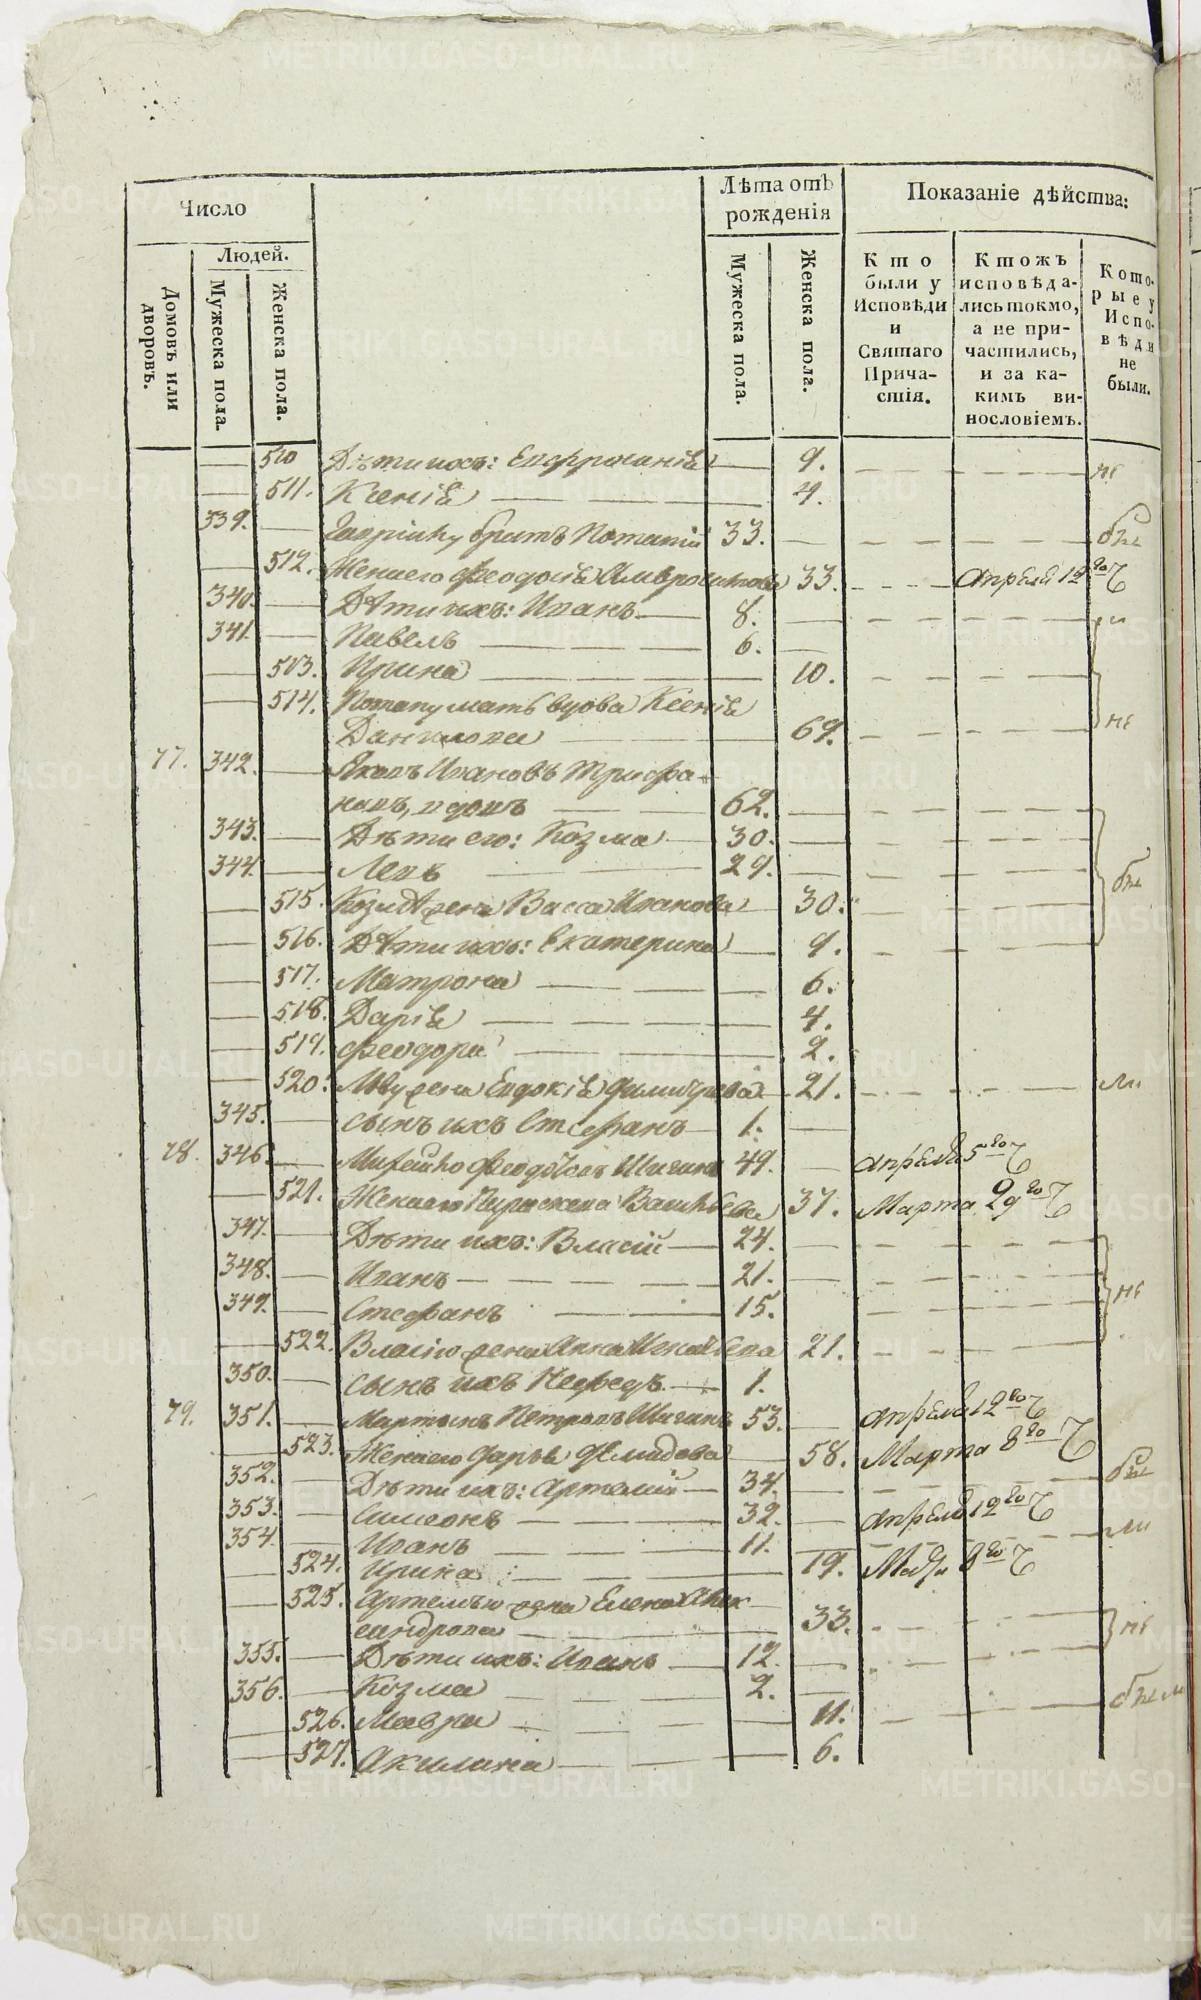 Число
Людей.
Домовъ или дворовъ.
Мужеска пола.
Женска пола.
Лѣта отъ рожденія
Мужеска пола.
Женска пола.
Показаніе дѣйства:
Кто были у Исповѣди и Святаго Причастія.
Ктожъ исповѣдались токмо, а не причастились, и за какимъ винословіемъ.
Которые у Исповѣди не были.
510 Дѣти ихъ: Евфросинія 9. не
511. Ксенія 4.
339. братъ Потапій 33. бы
512. Жена его Феодосія Амвросимова 33. Апреля 12го Ч
340. Дѣти ихъ: Иванъ 8. ли
341. Павелъ 6.
513. Ирина 10.
514. Потапу мать вдова Ксенія
Данилова 69. не
77. 342. Яковъ Ивановъ Трифа-
новъ, вдовъ 62.
343. Дѣти его: Козма 30.
344. Левъ 29. бы
515. Козмѣ жена Васса Иванова 30.
516. Дѣти ихъ: Екатерина 9.
517. Матрона 6.
518. Дарія 4.
519. Феодора 2.
520. Льву жена Евдокія 21. ли
345. сынъ ихъ Стефанъ 1.
78. 346. Шигинъ 49. Апреля 5го Ч
521. Жена его Параскева Васильева 37. Марта 29го Ч
347. Дѣти ихъ: Власій 24.
348. Иванъ 21.
349. Стефанъ 15. не
522. Власію жена Анна 21.
350. сынъ ихъ Мефодъ 1.
79. 351. Мартынъ Петровъ Шигинъ 53. Апреля 12го Ч
523. Жена его Дарья 58. Марта 8го Ч
352. Дѣти ихъ: Артемій 34. бы
353. Симеонъ 32. Апреля 12го Ч
354. Иванъ 11. ли
524. Ирина 19. 8го Ч
525. Артемью жена Елена Алек
сандрова 33. не
355. Дѣти ихъ: Иванъ 12.
356. Козма 2.
526. Мавра 11. были
527. Акилина 6.